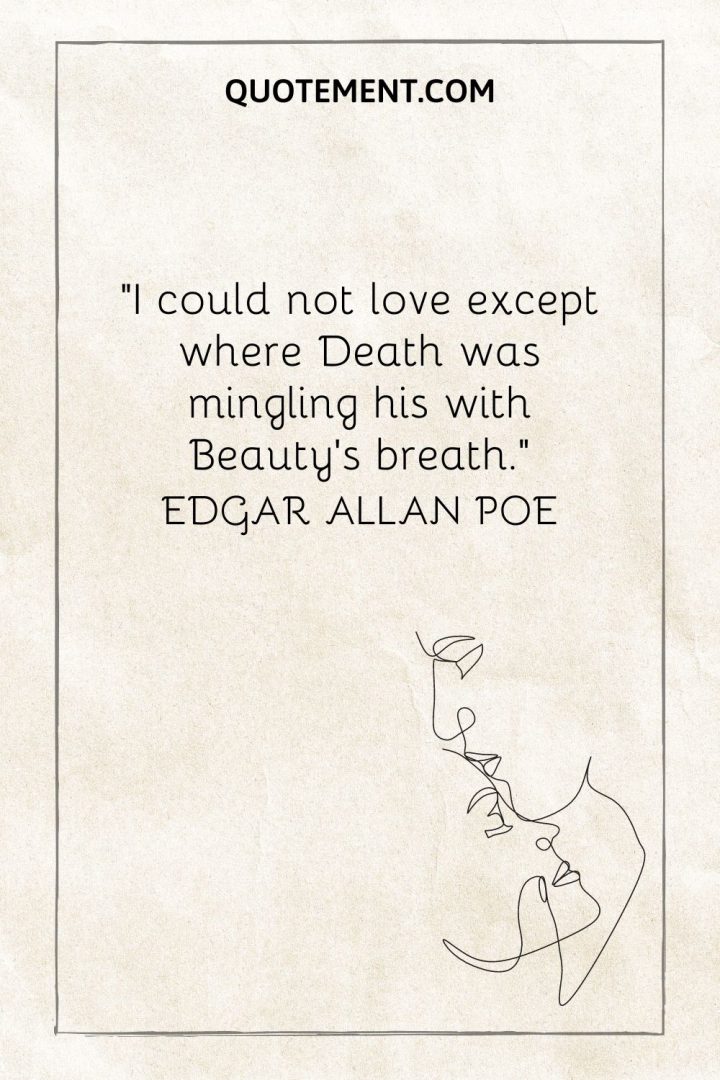 QUOTEMENT.COM
"I could not love except
where Death was
mingling his with
Beauty's breath."
EDGAR ALLAN POE